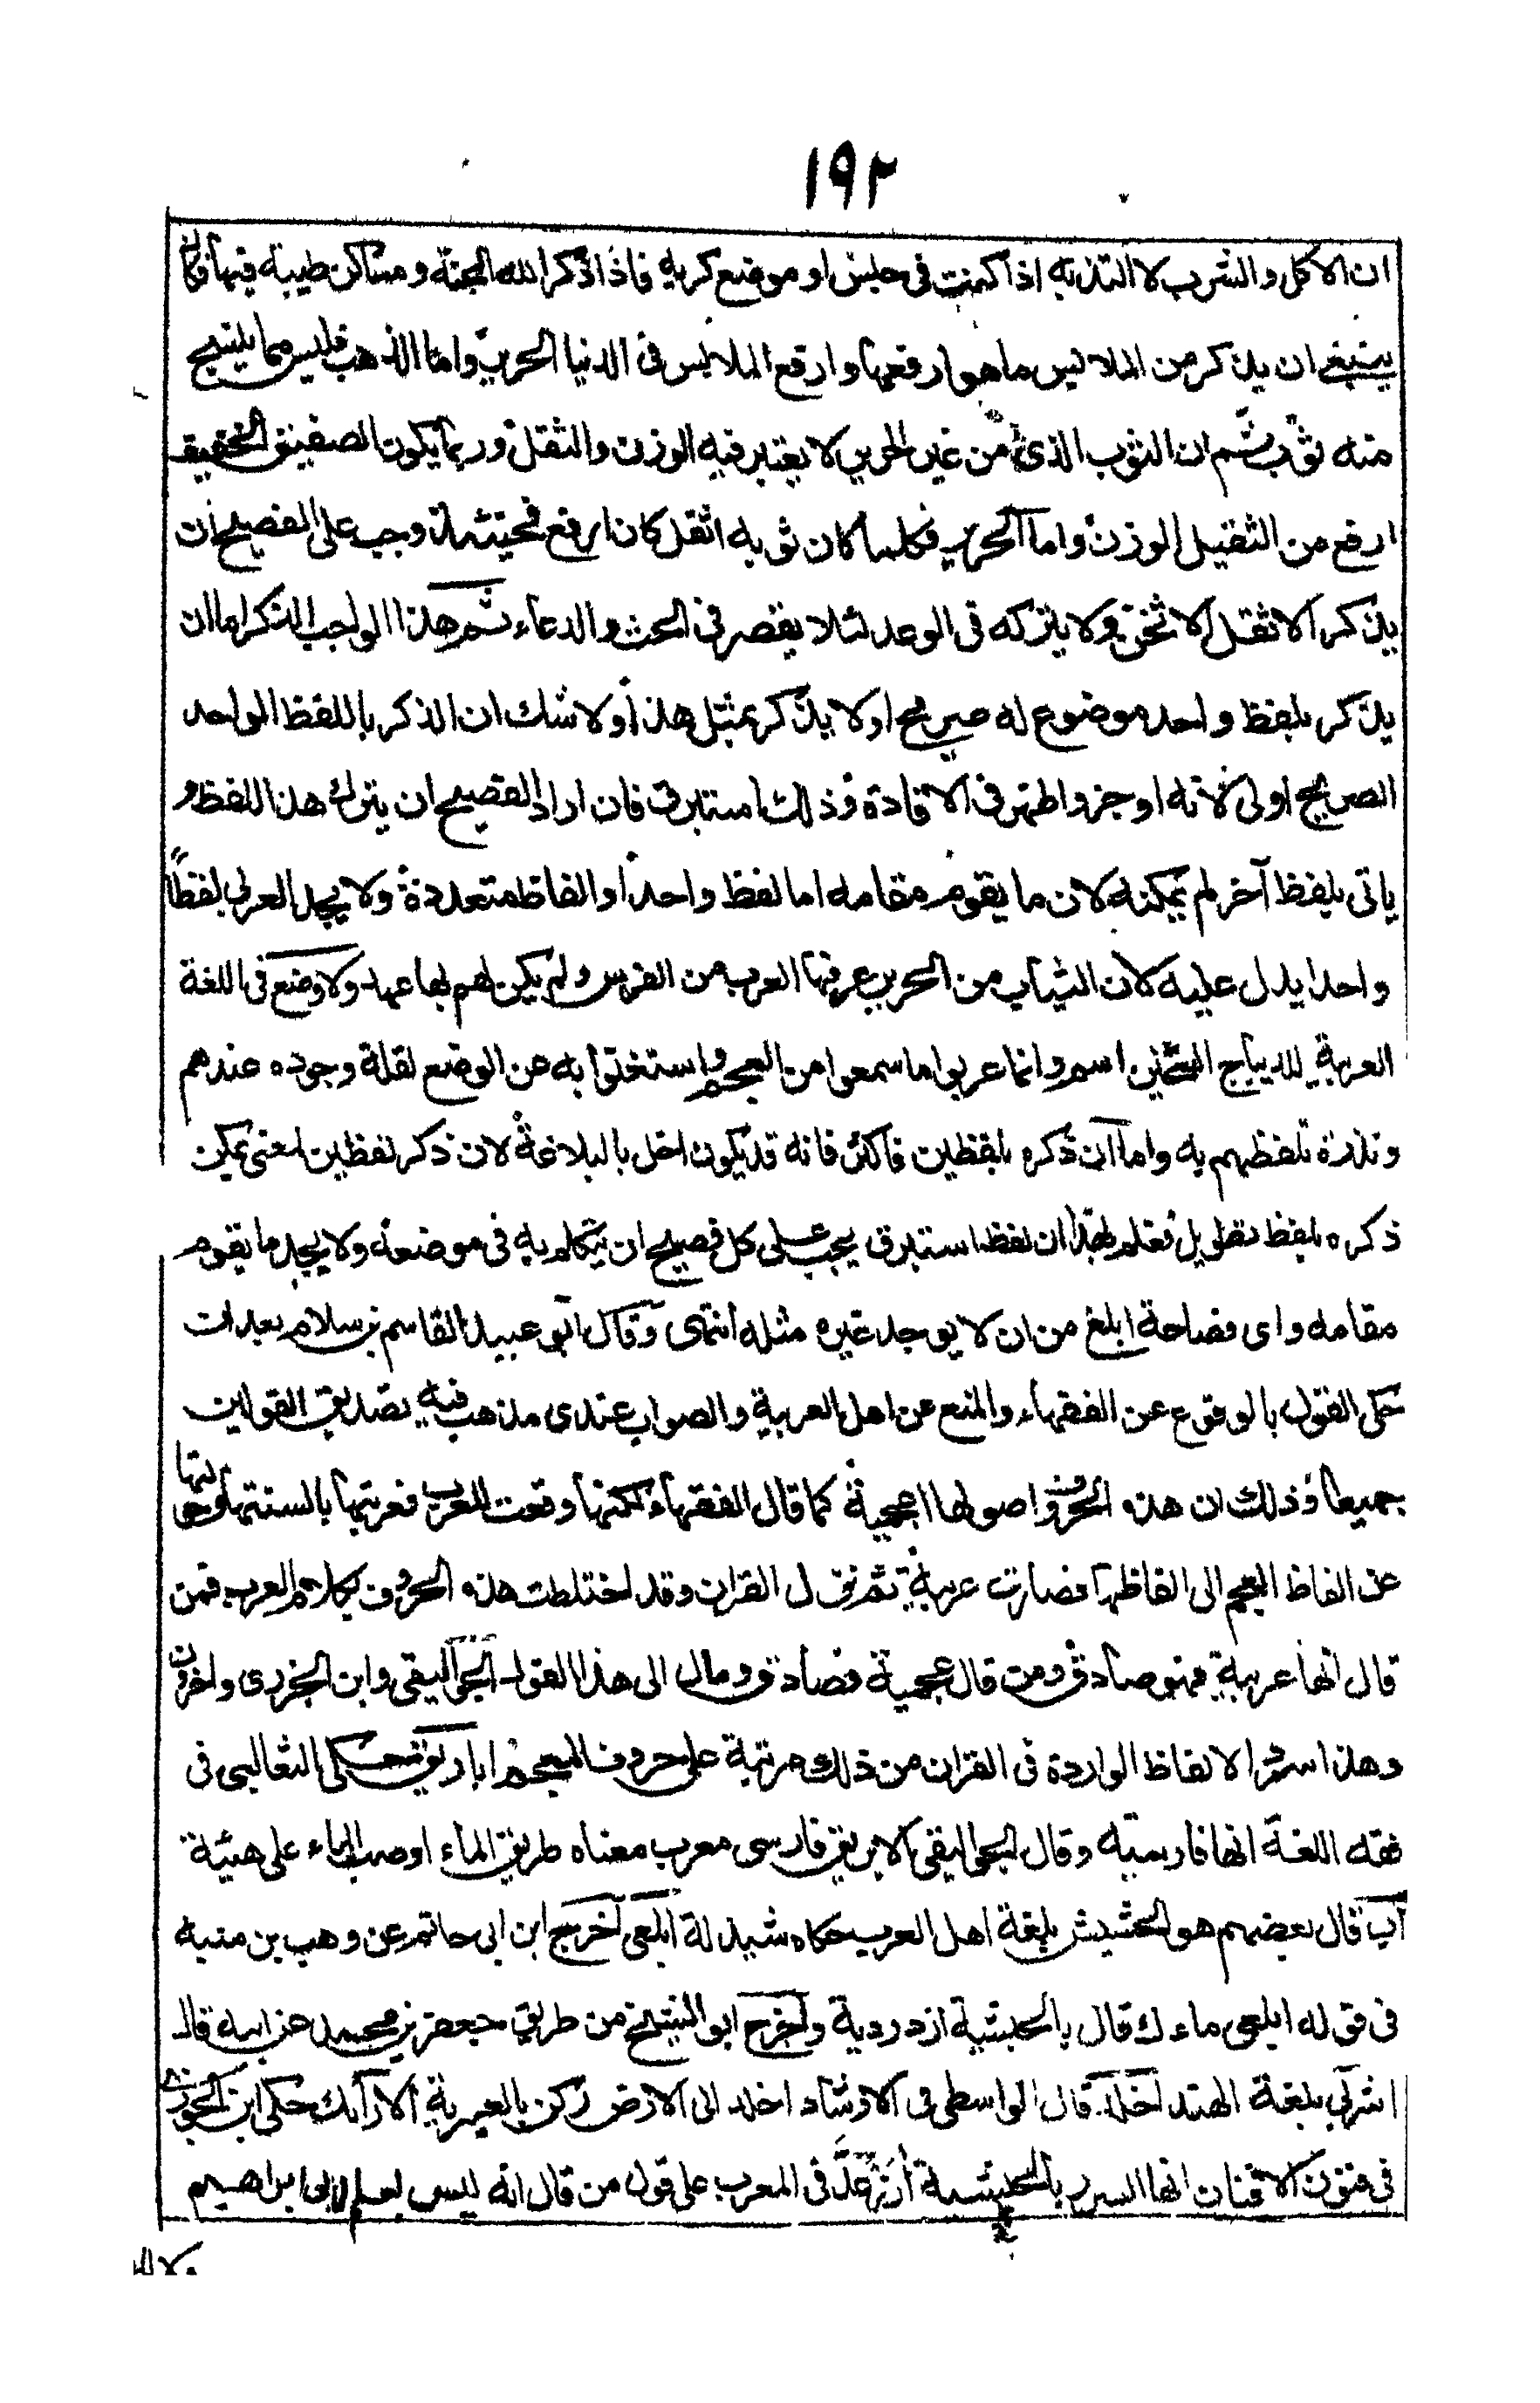 ١٩٢
ان الاكل والشرب لا التذ به اذا كنت فى حبس او موضع كريه فاذا ذكر الله الجنة ومساكن طيبة فيها فكان
ينبغى ان يذكر من الملابس ما هو ارفعها وارفع الملابس فى الدنيا الحرير واما الذهب فليس مما ينسج
منه ثوب ثم ان الثوب الذى من غير الحرير لا يعتبر فيه الوزن والثقل وربما يكون الصفيق الخفيف
ارفع من الثقيل الوزن واما الحرير فكلما كان ثوبه اثقل كان ارفع فحينئذ وجب على الفصيح ان
يذكر الاثقل الاثخن ولا يتركه فى الوعد لئلا يقصر فى الحث والدعاء ثم هذا الواجب الذكر اما ان
يذكر بلفظ واحد موضوع له صريح او لا يذكر بمثل هذا ولا شك ان الذكر باللفظ الواحد
الصريح اولى لانه اوجز واظهر فى الافادة وذلك استبرق فان اراد الفصيح ان يترك هذا اللفظ و
ياتى بلفظ آخر لم يمكنه لان ما يقوم مقامه اما لفظ واحد او الفاظ متعددة ولا يجد العربى لفظاً
واحدا يدل عليه لان الثياب من الحرير عرفها العرب من الفرس ولم يكن لهم بها عهد ولا وضع فى اللغة
العربية للديباج الثخين اسم وانما عربوا ما سمعوا من العجم واستغنوا به عن الوضع لقلة وجوده عندهم
ونذرة تلفظهم به واما ان ذكره بلفظين فاكثر فانه قد يكون اخل بالبلاغة لان ذكر لفظين لمعنى يمكن
ذكره بلفظ تطويل فعلم بهذا ان لفظ استبرق يجب على كل فصيح ان يتكلم به فى موضعه ولا يجد ما يقوم
مقامه واى فصاحة ابلغ من ان لا يوجد غيره مثله انتهى وقال ابو عبيد القاسم بن سلام بعد ان
حكى القول بالوقوع عن الفقهاء والمنع عن اهل العربية والصواب عندى مذهب فيه تصديق القولين
جميعا وذلك ان هذه الحروف اصولها اعجمية كما قال الفقهاء لكنها وقعت للعرب فعربتها بالسنتها وحولتها
عن الفاظ العجم الى الفاظها فصارت عربية ثم نزل القران وقد اختلطت هذه الحروف بكلام العرب فمن
قال انها عربية فهو صادق ومن قال عجمية فصادق ومال الى هذا القول الجواليقى وابن الجزرى واخرون
وهذا سرد الالفاظ الواردة فى القران من ذلك مرتبة على حروف المعجم اباريق حكى الثعالبى فى
فقه اللغة انها فارسية وقال الجواليقى الابريق فارسى معرب معناه طريق الماء او صب الماء على هيئة
اب قال بعضهم هو الحشيش بلغة اهل العرب حكاه شيذلة ابلعى اخرج ابن ابى حاتم عن وهب بن منبه
فى قوله ابلعى ماءك قال بالحبشية ازدردية واخرج ابو الشيخ من طريق جعفر بن محمد عن ابيه قال
اشربى بلغة الهند اخلد قال الواسطى فى الارشاد اخلد الى الارض ركن بالعبرية الارائك حكى ابن الجوزى
فى فنون الافنان انها السرر بالحبشية ازر عدّ فى المعرب على قول من قال انه ليس بعلم لابى ابراهيم